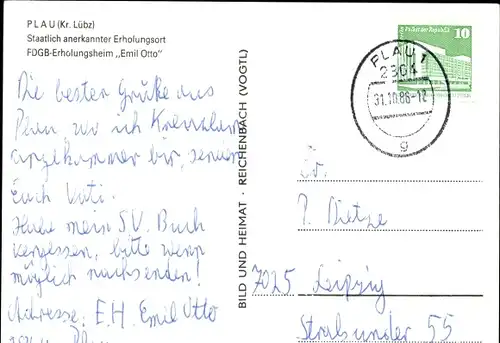 PLAU (Kr. Lübz)
Staatlich anerkannter Erholungsort
FDGB-Erholungsheim „Emil Otto"
Die besten Grüße aus
Plau wo ich
angekommen bin, sendet
Euch Vati.
Habe mein S.V. Buch
vergessen, bitte wenn
möglich nachsenden!
Adresse: E.H. Emil Otto
BILD UND HEIMAT · REICHENBACH (VOGTL)
Palast der Republik 10
PLAU 1
2864
31.10.86-12
g
Dietze
7025 Leipzig
Stralsunder 55